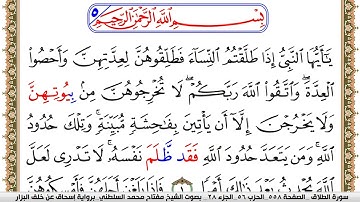 ٥
بِسْمِ اللَّهِ الرَّحْمَٰنِ الرَّحِيمِ
يَٰٓأَيُّهَا النَّبِيُّ إِذَا طَلَّقْتُمُ النِّسَآءَ فَطَلِّقُوهُنَّ لِعِدَّتِهِنَّ وَأَحْصُوا
الْعِدَّةَ وَاتَّقُوا اللَّهَ رَبَّكُمْ لَا تُخْرِجُوهُنَّ مِنۢ بِيُوتِهِنَّ
وَلَا يَخْرُجْنَ إِلَّآ أَن يَأْتِينَ بِفَٰحِشَةٍ مُّبَيِّنَةٍ وَتِلْكَ حُدُودُ
اللَّهِ وَمَن يَتَعَدَّ حُدُودَ اللَّهِ فَقَد ظَّلَمَ نَفْسَهُ لَا تَدْرِي لَعَلَّ
اللَّهَ يُحْدِثُ بَعْدَ ذَٰلِكَ أَمْرًا فَإِذَا بَلَغْنَ أَجَلَهُنَّ فَأَمْسِكُوهُنَّ
سورة الطلاق . الصفحة ٥٥٨ . الحزب ٥٦ . الجزء ٢٨ . بصوت الشيخ مفتاح محمد السلطني . برواية إسحاق عن خلف البزار